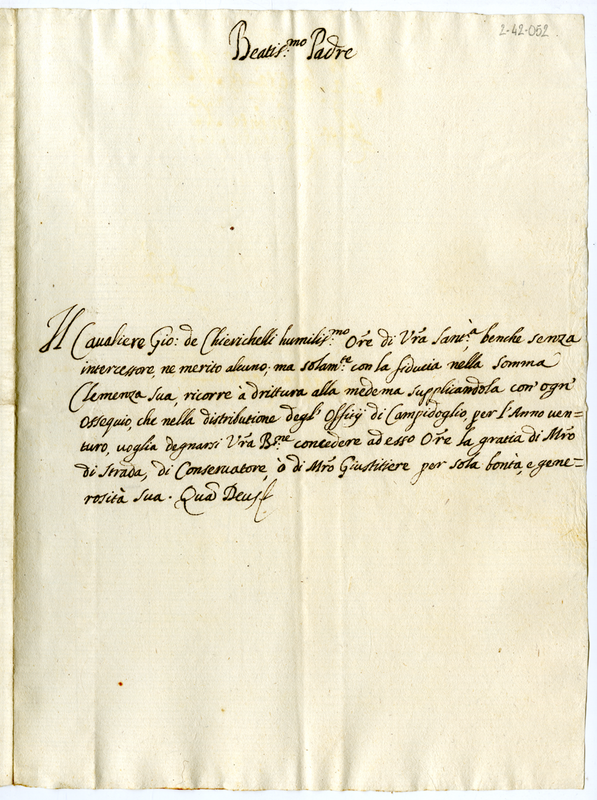 2-42-052
Beatis.mo Padre
Il Cavaliere Gio: de Chierichelli humilis.mo Ore di Vra Sant.a, benche senza
intercessore, ne merito alcuno; ma solam.te con la fiducia nella somma
Clemenza sua, ricorre à drittura alla medema supplicandola con ogn'
ossequio, che nella distributione degl' Offitij di Campidoglio, per l'Anno ven=
turo, voglia degnarsi Vra B.ne concedere ad esso Ore la gratia di Mro
di Strada, di Conservatore, ò di Mro Giustitiere per sola bontà, e gene=
rosità sua. Quã Deus